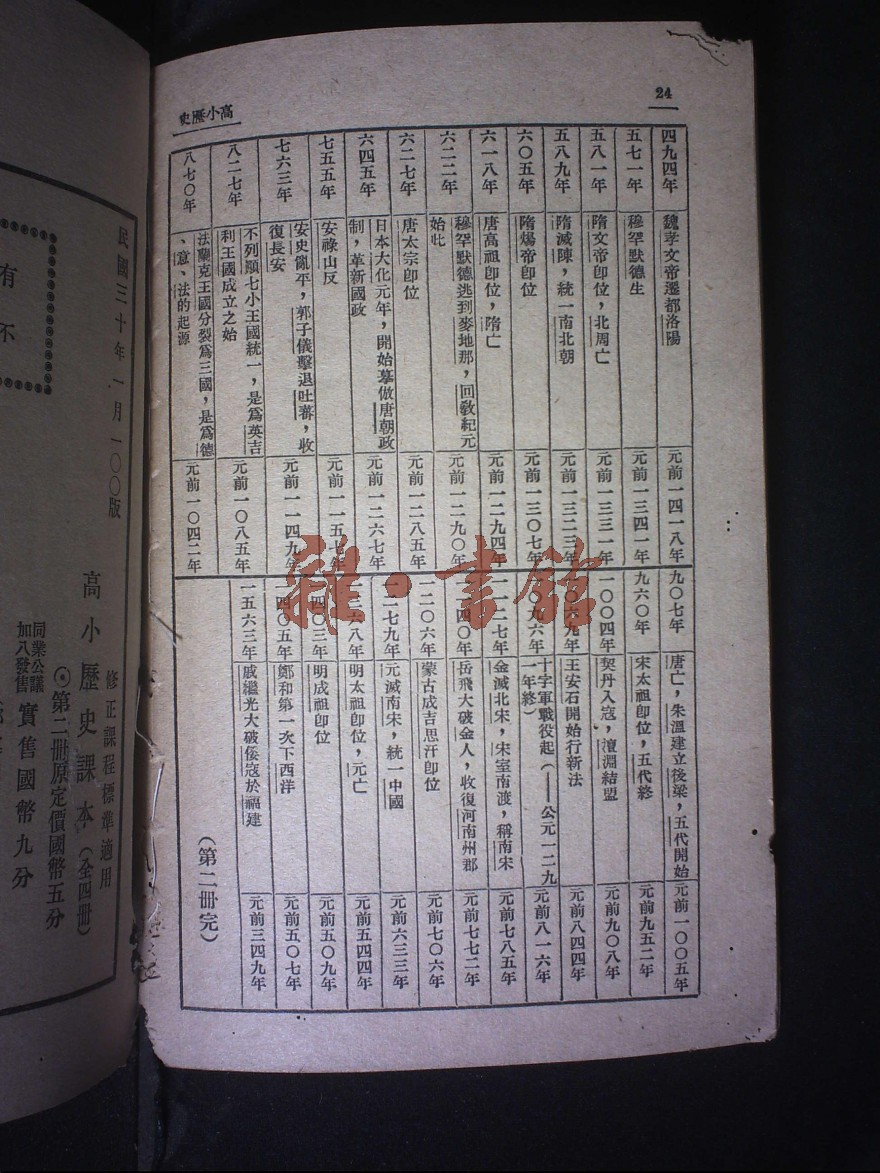 24
高小歷史
四九四年
魏孝文帝遷都洛陽
元前一四一八年
五七一年
穆罕默德生
元前一三四一年
五八一年
隋文帝卽位，北周亡
元前一三三一年
五八九年
隋滅陳，統一南北朝
元前一三二三年
六〇五年
隋煬帝卽位
元前一三〇七年
六一八年
唐高祖卽位，隋亡
元前一二九四年
六二二年
穆罕默德逃到麥地那，回敎紀元
始此
元前一二九〇年
六二七年
唐太宗卽位
元前一二八五年
六四五年
日本大化元年，開始摹倣唐朝政
制，革新國政
元前一二六七年
七五五年
安祿山反
元前一一五七年
七六三年
安史亂平，郭子儀擊退吐蕃，收
復長安
元前一一四九年
八二七年
不列顚七小王國統一，是爲英吉
利王國成立之始
元前一〇八五年
八七〇年
法蘭克王國分裂爲三國，是爲德
、意、法的起源
元前一〇四二年
九〇七年
唐亡，朱溫建立後梁，五代開始
元前一〇〇五年
九六〇年
宋太祖卽位，五代終
元前九五二年
一〇〇四年
契丹入寇，澶淵結盟
元前九〇八年
一〇六九年
王安石開始行新法
元前八四四年
一〇九六年
十字軍戰役起（——公元一二九
一年終）
元前八一六年
一一二七年
金滅北宋，宋室南渡，稱南宋
元前七八五年
一一四〇年
岳飛大破金人，收復河南州郡
元前七七二年
一二〇六年
蒙古成吉思汗卽位
元前七〇六年
一二七九年
元滅南宋，統一中國
元前六三三年
一三六八年
明太祖卽位，元亡
元前五四四年
一四〇三年
明成祖卽位
元前五〇九年
一四〇五年
鄭和第一次下西洋
元前五〇七年
一五六三年
戚繼光大破倭寇於福建
元前三四九年
（第二册完）
雜·書館
修正課程標準適用
高小歷史課本（全四册）
第二册原定價國幣五分
實售國幣九分
同業公議
加八發售
民國三十年一月一〇〇版
有
不